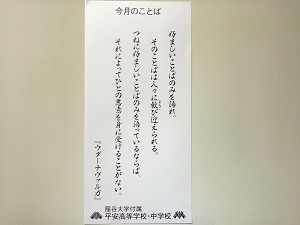 今月のことば
好ましいことばのみを語れ。
そのことばは人々に歓び迎えられる。
つねに好ましいことばのみを語っているならば、
それによってひとの悪意を身に受けることがない。
『ウダーナヴァルガ』
龍谷大学付属
平安高等学校・中学校